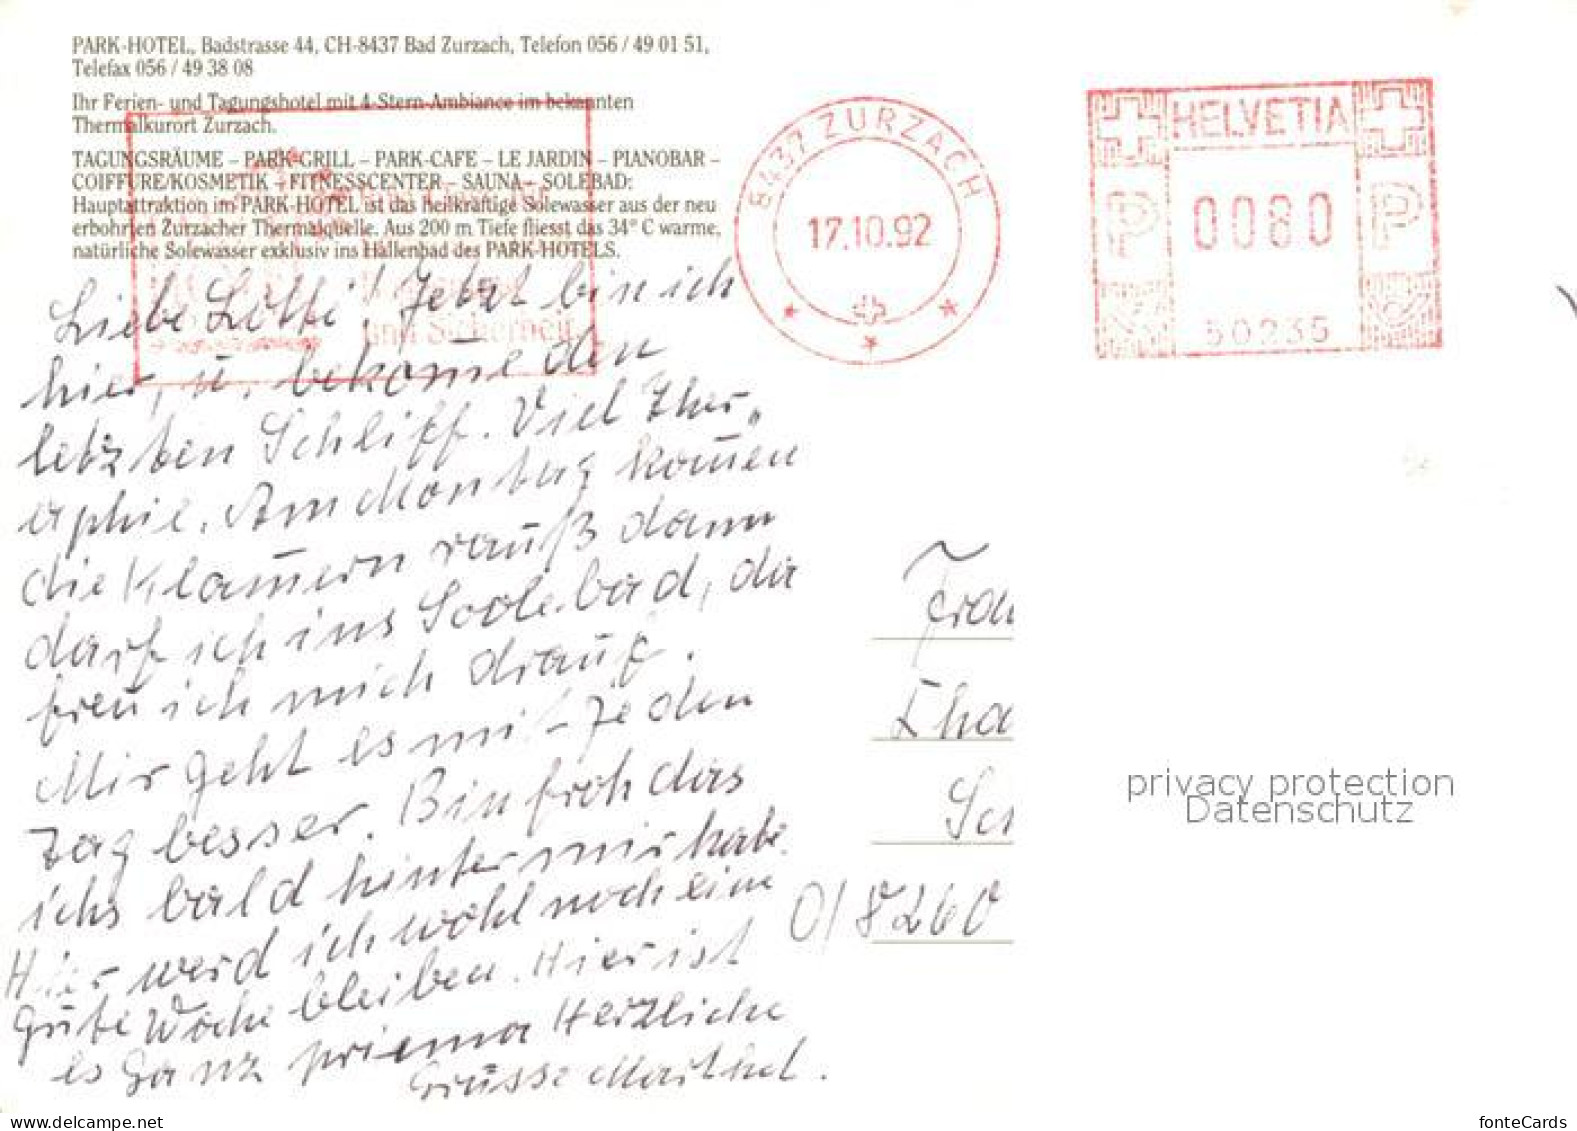 PARK-HOTEL, Badstrasse 44, CH-8437 Bad Zurzach, Telefon 056 / 49 01 51,
Telefax 056 / 49 38 08
Ihr Ferien- und Tagungshotel mit 4-Stern-Ambiance im bekannten
Thermalkurort Zurzach.
TAGUNGSRÄUME – PARK-GRILL – PARK-CAFE – LE JARDIN – PIANOBAR –
COIFFURE/KOSMETIK – FITNESSCENTER – SAUNA – SOLEBAD:
Hauptattraktion im PARK-HOTEL ist das heilkräftige Solewasser aus der neu
erbohrten Zurzacher Thermalquelle. Aus 200 m Tiefe fliesst das 34° C warme,
natürliche Solewasser exklusiv ins Hallenbad des PARK-HOTELS.
und Sicherheit
8437 ZURZACH
17.10.92
HELVETIA
P 0080 P
50235
Liebe Lotti! Jetzt bin ich
hier, u. bekom̅e den
letzten Schliff. Viel Ther„
aphie. Am Montag kom̅en
die Klam̅ern rauß dann
darf ich ins Soolebad, da
freu ich mich drauf.
Mir geht es mit jeden
Tag besser. Bin froh das
ichs bald hinter mir habe.
Hier werd ich wohl noch eine
Gute Woche bleiben. Hier ist
es Ganz priema Herzliche
Grüsse
Frau
0/8260
privacy protection
Datenschutz
delcampe.net
fonteCards